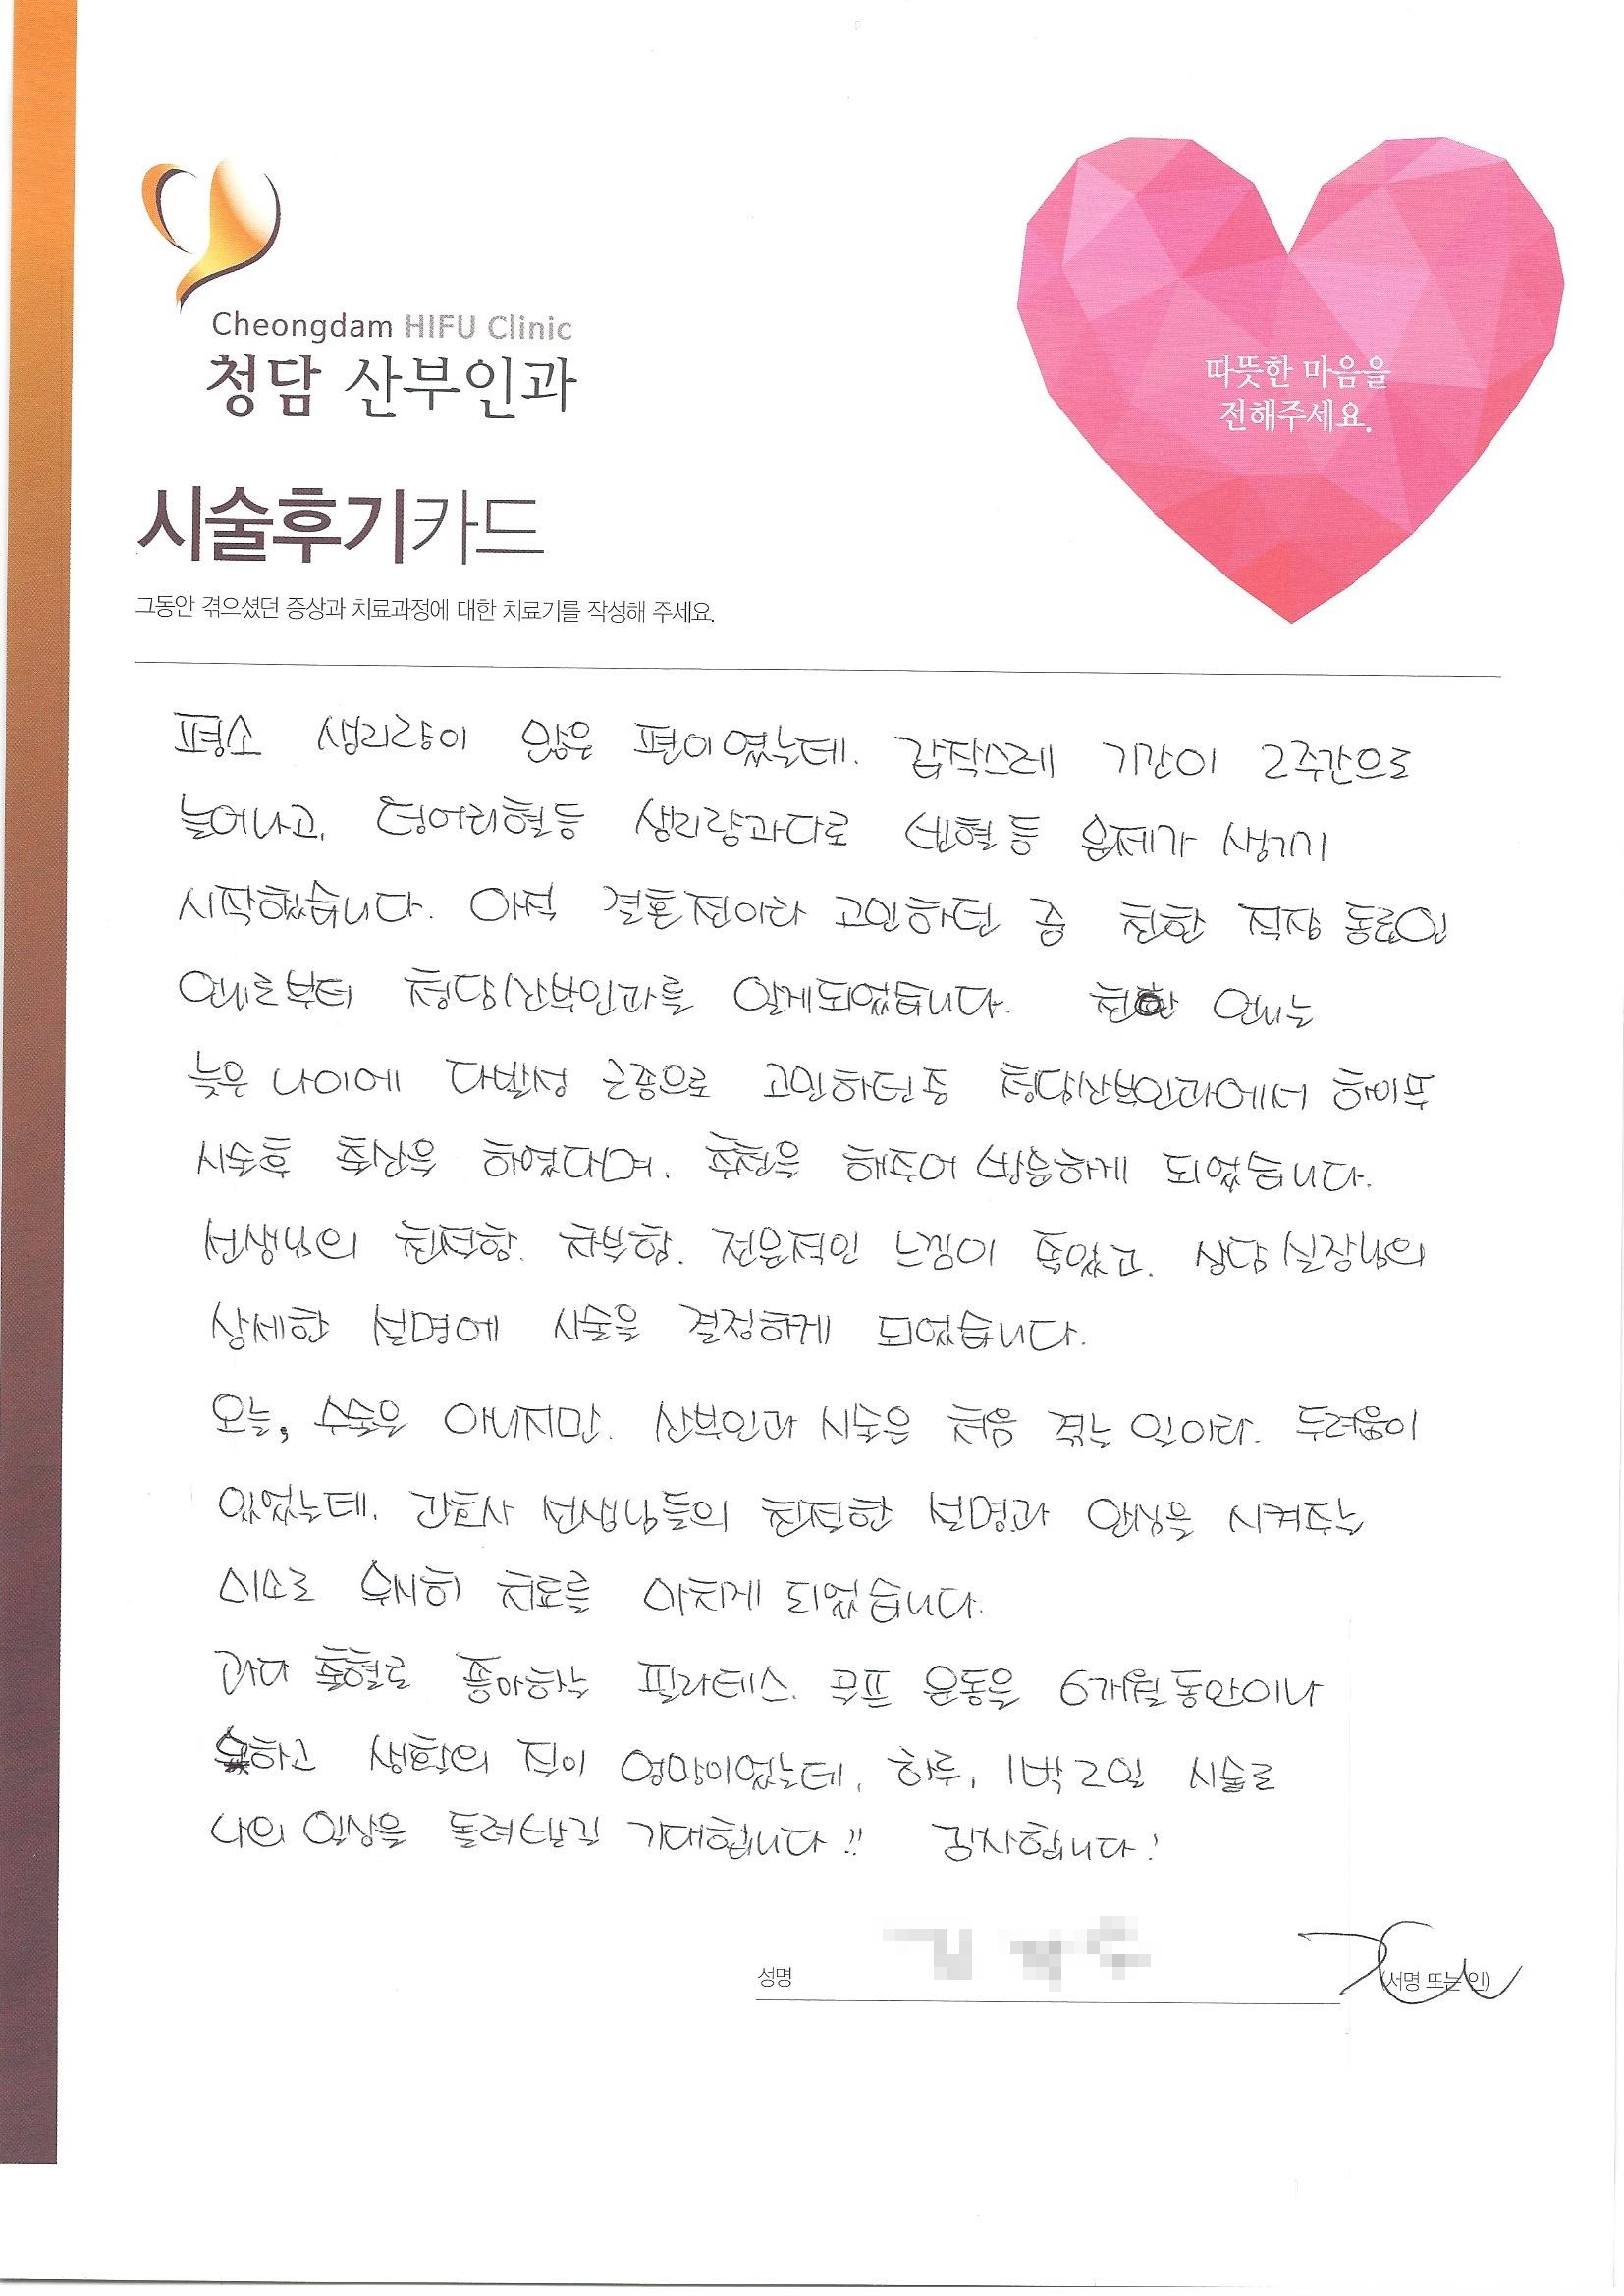 Cheongdam HIFU Clinic
청담 산부인과
따뜻한 마음을
전해주세요.
시술후기카드
그동안 겪으셨던 증상과 치료과정에 대한 치료기를 작성해 주세요.
평소 생리량이 많은 편이였는데. 갑작스레 기간이 2주간으로
늘어나고, 덩어리혈등 생리량과다로 빈혈 등 문제가 생기기
시작했습니다. 아직 결혼전이라 고민하던 중 친한 직장 동료인
언니로부터 청담산부인과를 알게되었습니다. 친한 언니는
늦은 나이에 다발성 근종으로 고민하던중 청담산부인과에서 하이푸
시술후 출산을 하였다며. 추천을 해주어 방문하게 되었습니다.
선생님의 친절함. 차분함. 전문적인 느낌이 좋았고. 상담실장님의
상세한 설명에 시술을 결정하게 되었습니다.
오늘, 수술은 아니지만. 산부인과 시술은 처음 겪는 일이라. 두려움이
있었는데. 간호사 선생님들의 친절한 설명과 안심을 시켜주는
미소로 무사히 치료를 마치게 되었습니다.
과다 출혈로 좋아하는 필라테스. 골프 운동을 6개월동안이나
못하고 생활의 질이 엉망이었는데, 하루, 1박2일 시술로
나의 일상을 돌려받길 기대합니다!! 감사합니다!
성명
(서명 또는 인)